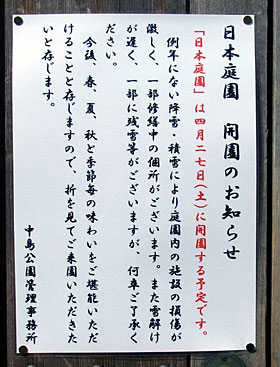 日本庭園　開園のお知らせ
「日本庭園」は四月二七日(土)に開園する予定です。
例年にない降雪・積雪により庭園内の施設の損傷が
激しく、一部修繕中の個所がございます。また雪解け
が遅く、一部に残雪等がございますが、何卒ご了承く
ださい。
今後、春、夏、秋と季節毎の味わいをご堪能いただ
けることと存じますので、折を見てご来園いただきた
いと存じます。
中島公園管理事務所